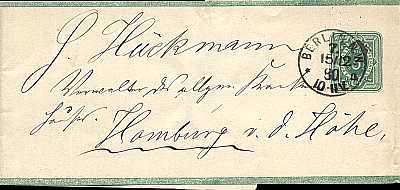 J. Hückmann
Verwalter des allgem. Kranken
häuser.
Homburg v. d. Höhe,
BERLIN
15/12
80
10-11V.